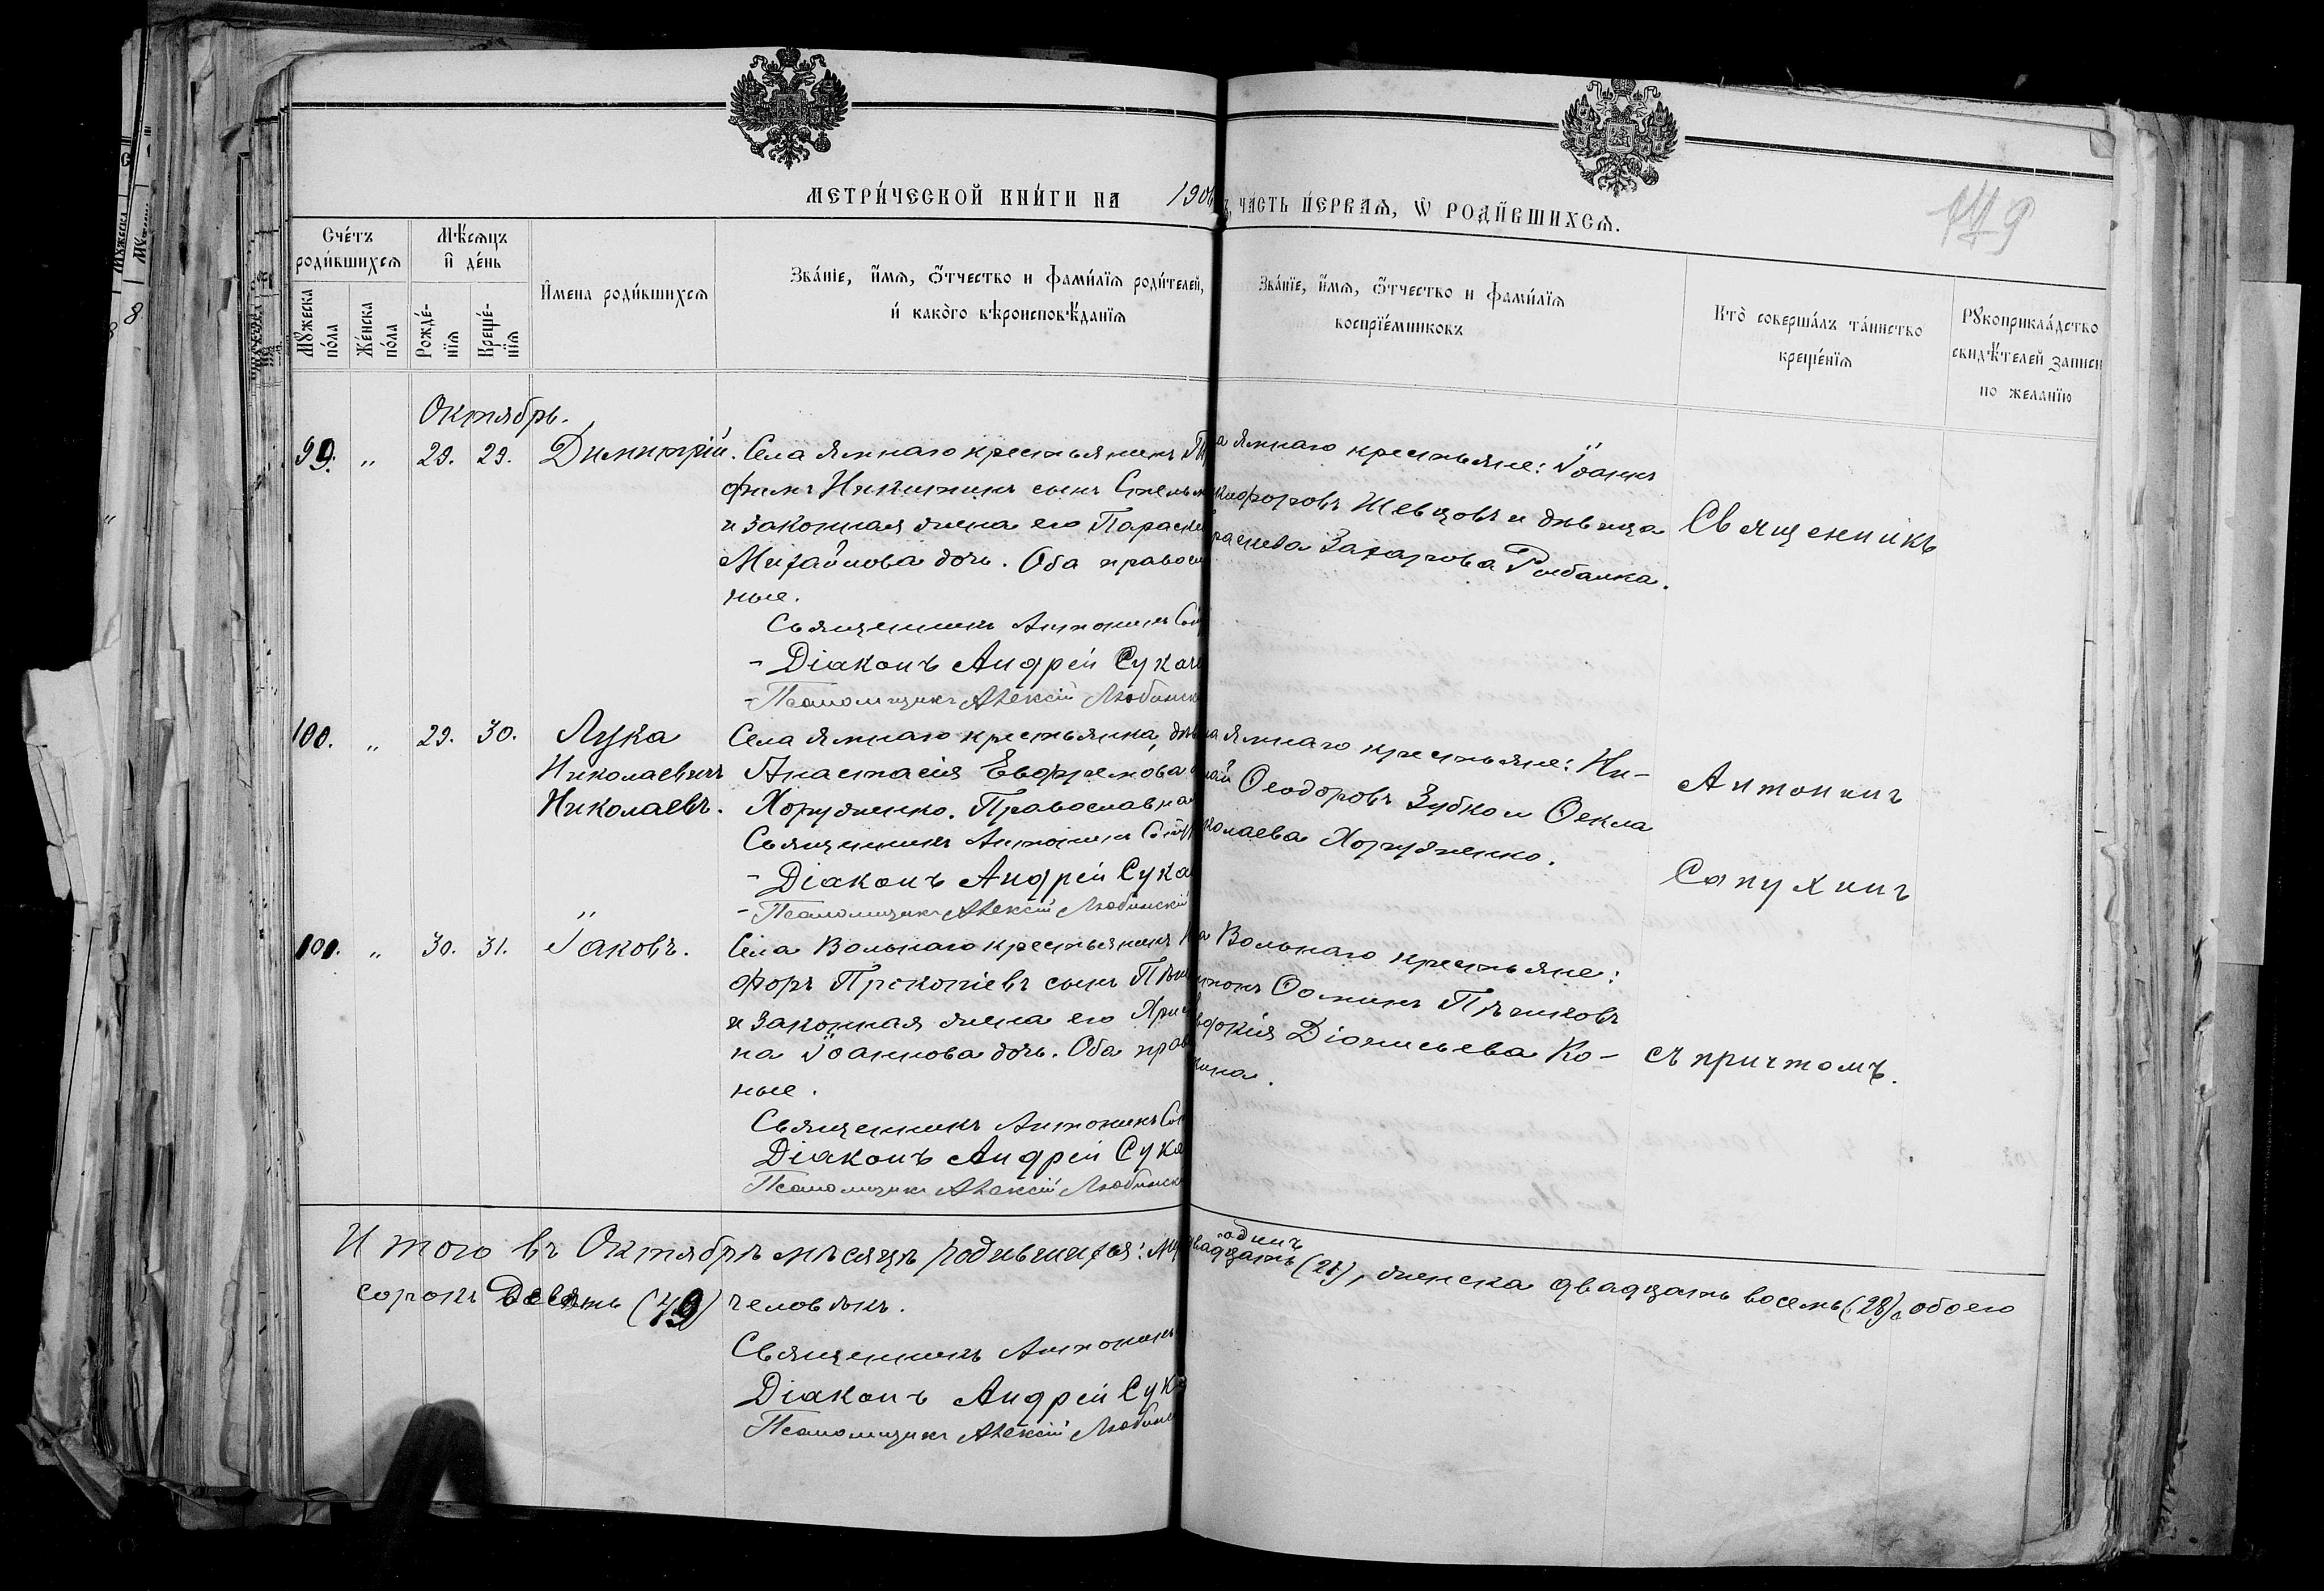 МЕТРИ́ЧЕСКОЙ КНИ́ГИ НА 190
ЧА́СТЬ ПЕ́РВАѦ, Ѡ РОДИ́ВШИХСѦ.
179
Сче́тъ родившихсѧ
Мѣ́сѧцъ и де́нь
Мꙋ́жеска по́ла
Же́нска по́ла
Рожде́нїѧ
Креще́нїѧ
И́мена роди́вшихсѧ
Зва́нїе, и́мѧ, ѻ́тчество и фами́лїѧ роди́телей,
и како́гѡ вѣроисповѣ́данїѧ
Зва́нїе, и́мѧ, ѻ́тчество и фами́лїѧ
воспрїе́мниковъ
Кто̀ соверша́лъ та́инство
креще́нїѧ
Рꙋкоприкла́дство
свидѣ́телей записи
по жела́нїю
Октябрь.
99. " 29. 29. Димитрій. Села Ямнаго крестьянинъ
фимъ Никитинъ сынъ
и законная жена его Параске
Михайлова дочь. Оба правос
ные.
Священникъ Антонинъ
Діаконъ Андрей Сука
Псаломщикъ Алексій Любинск
а Ямнаго крестьяне: Іоаннъ
кифоровъ Шевцовъ и дѣвица
раскева Захарова Рыбалка.
Священникъ
100. " 29. 30. Лука
Николаевичъ
Николаевъ.
Села Ямнаго крестьянка, дѣв
Анастасія Евфремова
Хоружненко. Православна
Священникъ Антонинъ
Діаконъ Андрей Сука
Псаломщикъ Алексій Любинскій
а Ямнаго крестьяне: Ни-
лай Ѳеодоровъ Зубко и Ѳекла
колаева Хоружненко.
Антонинъ
Сапухинъ
101. " 30. 31. Іаковъ.
Села Вольнаго крестьянинъ
форъ Прокопіевъ сынъ
и законная жена его Хри
на Іоаннова дочь. Оба прав
ные.
Священникъ Антонинъ
Діаконъ Андрей Сука
Псаломщикъ Алексій Любинск
а Вольнаго крестьяне:
Ѳоминъ Пѣшковъ
вдокія Діонисьева Ко-
съ причтомъ.
Итого въ Октябрѣ мѣсяцѣ родившихся: му
двадцать одинъ (21), женска двадцать восемь (28), обоего
сорокъ девять (49) человѣкъ.
Священникъ Антонинъ
Діаконъ Андрей Сук
Псаломщикъ Алексій Любинс